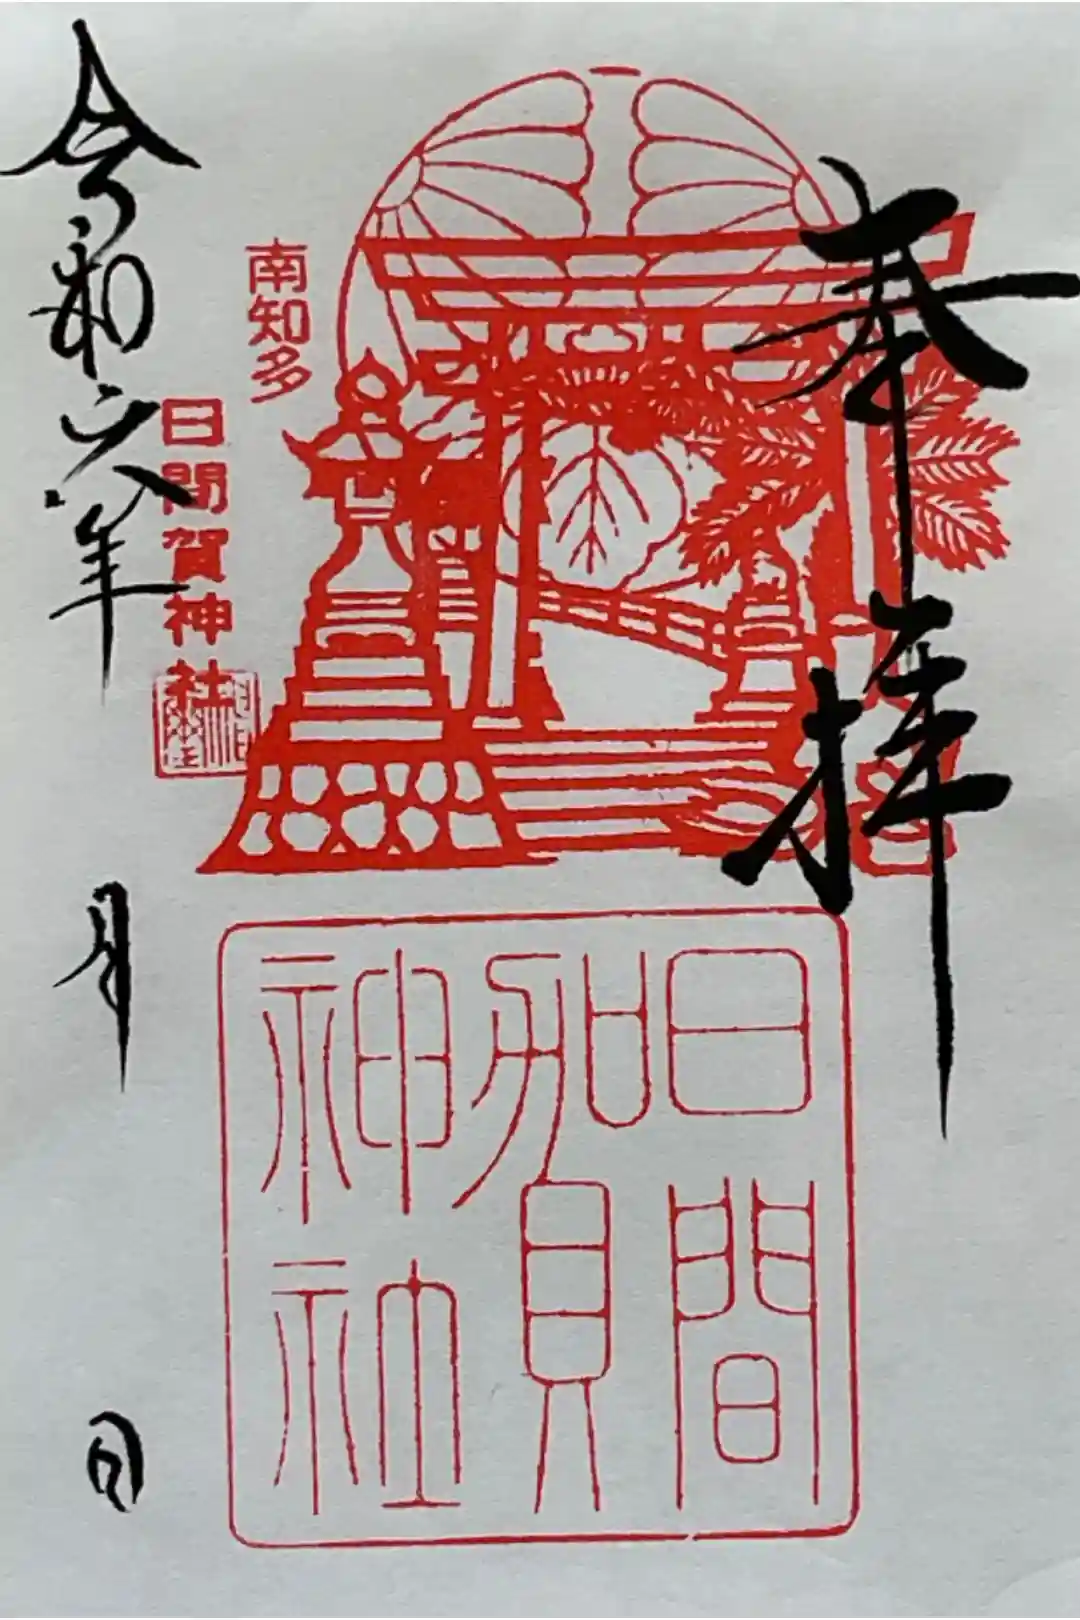 奉拝
日間
賀
神社
南知多
日間賀神社
令和六年
月
日